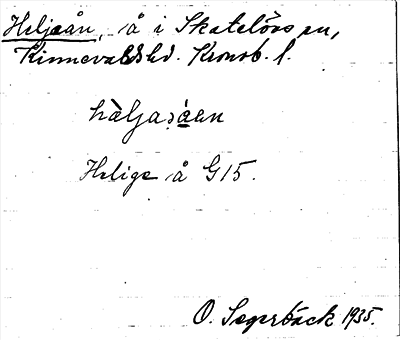 Heljeån, å i Skatelövs sn,
Kinnevalds hd. Kronob. l.
Helige å G15.
O. Segerbäck 1935.